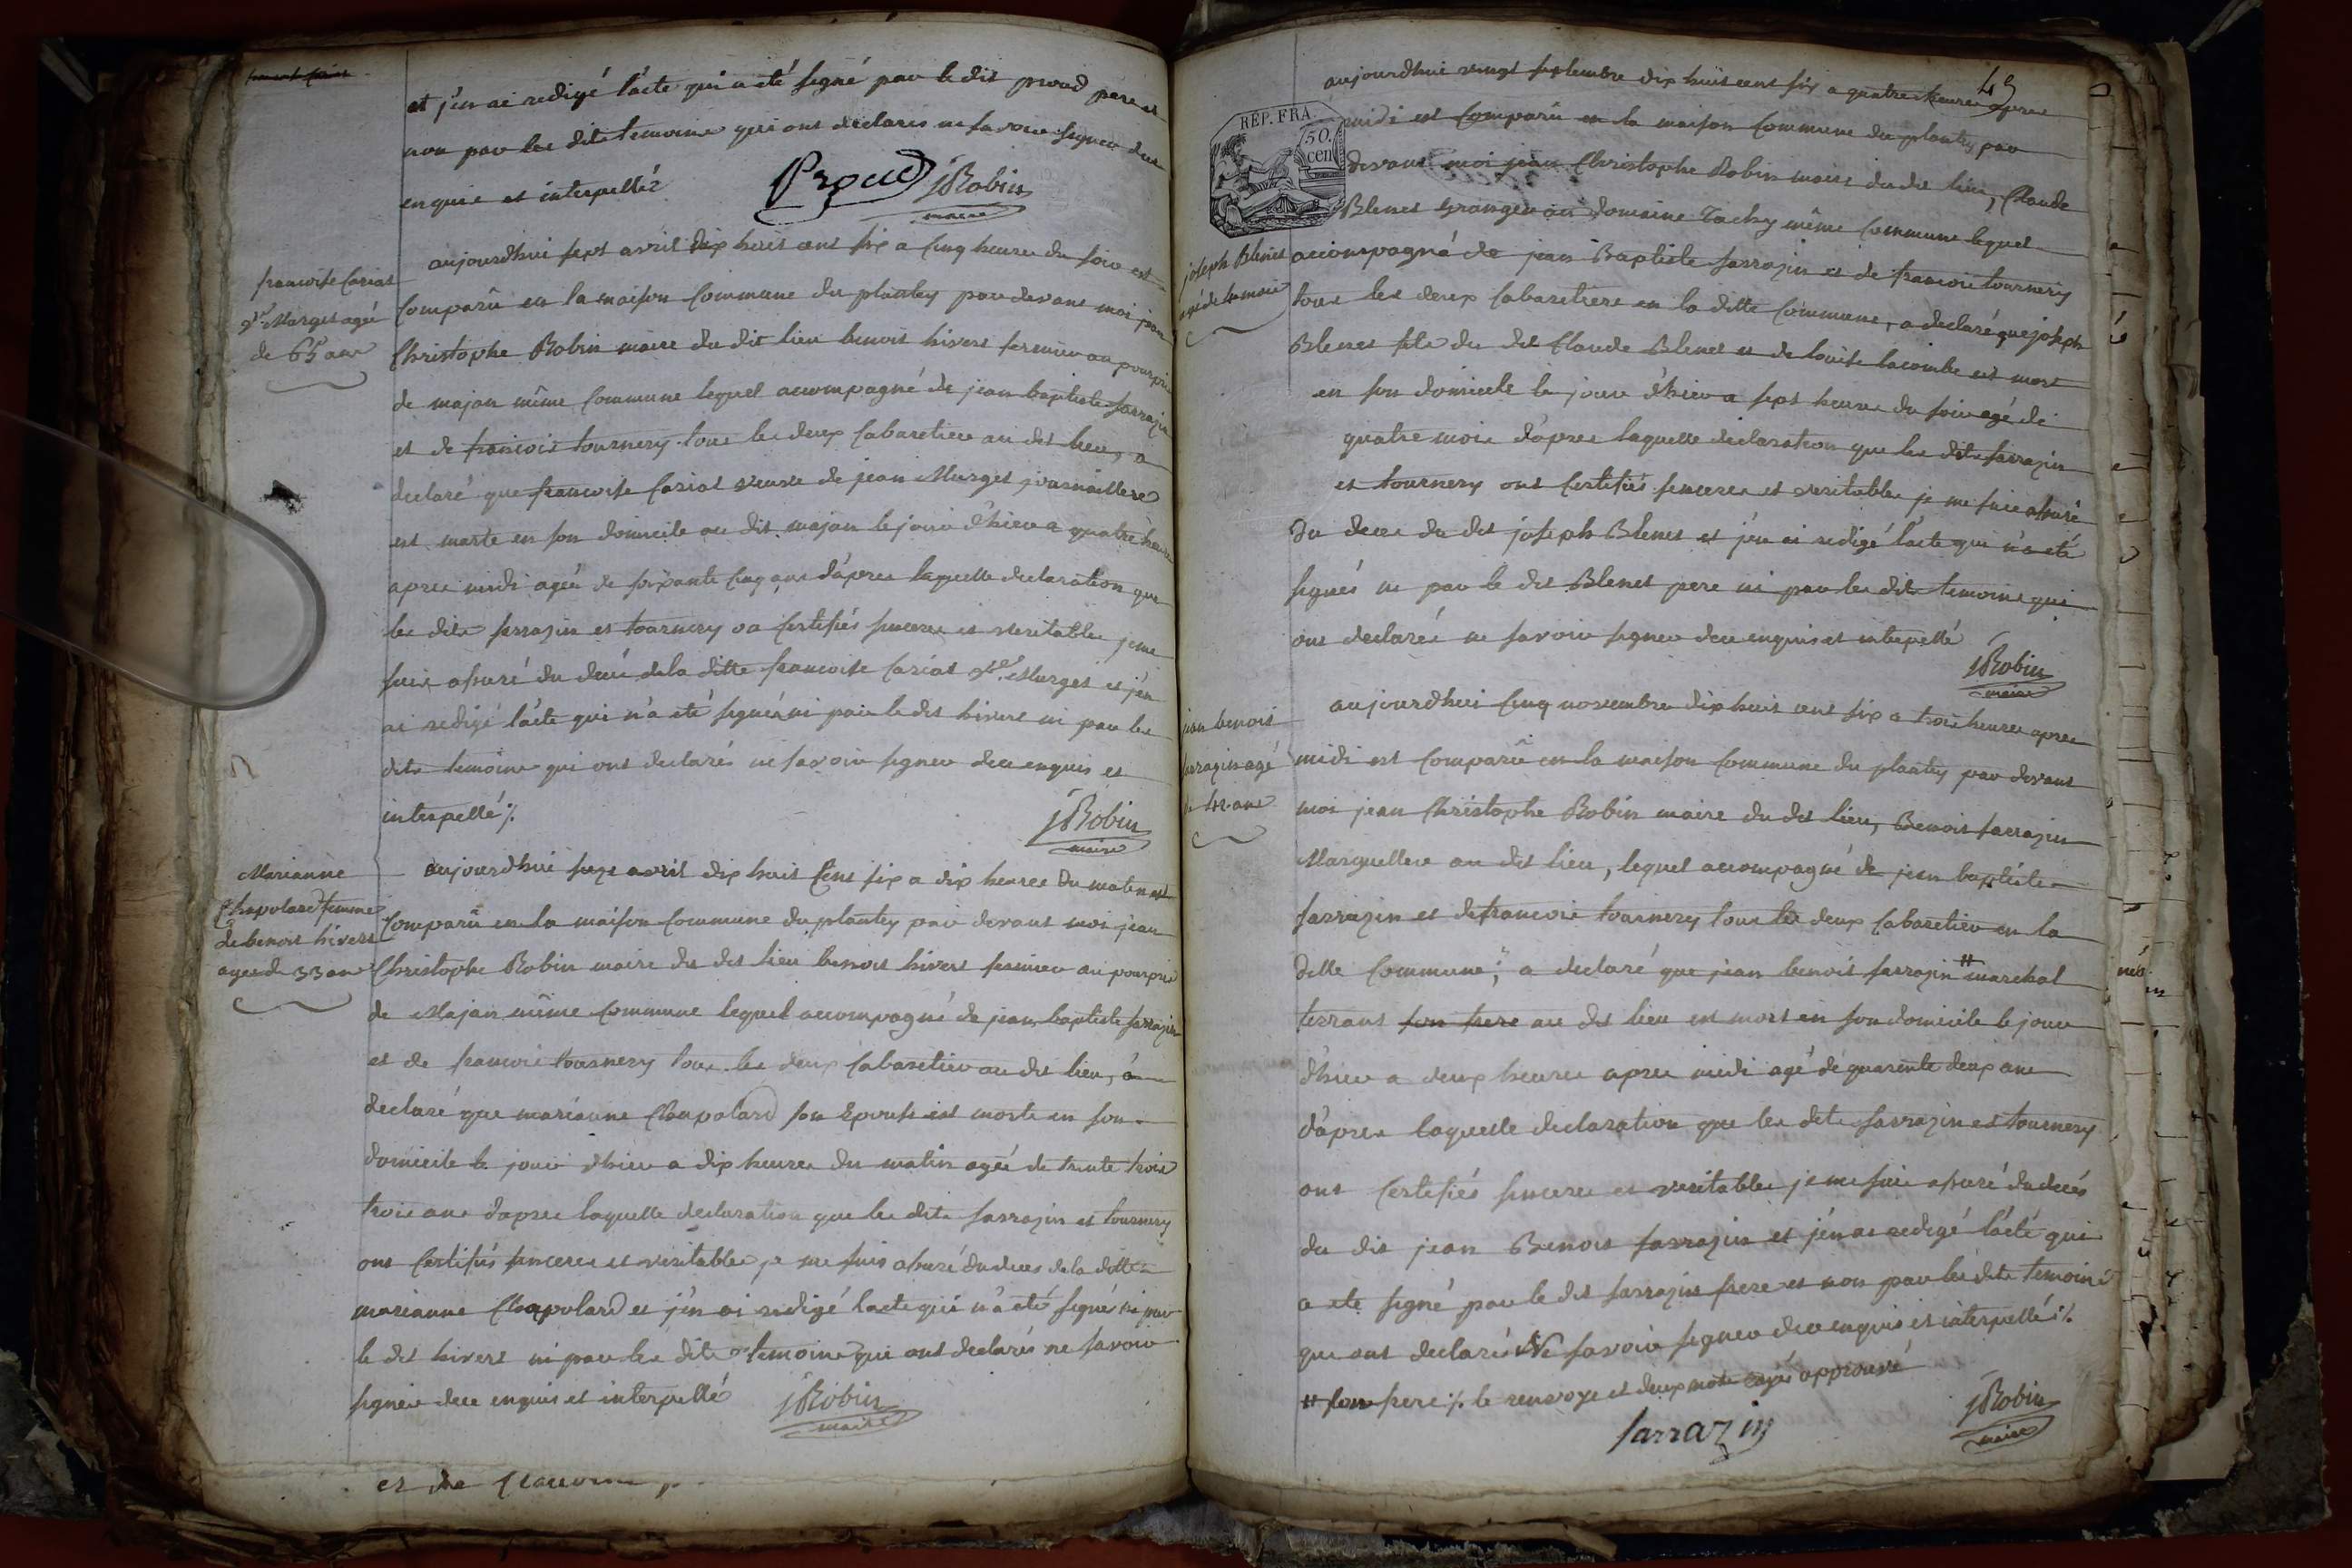 et j'en ai redigé l'acte qui a été signé par le dit proud pere et
non par les dits temoins qui ont declarés ne savoir signer dece
enquis et interpellés
Proud JRobin
maire
francoise Cariat
Vve Murget agée
de 65 ans
aujourdhui sept avril dix huit cent six a cinq heures du soir est
Comparû en la maison Commune du plantey par devant moi jean
Christophe Robin maire du dit lieu benoit hivert fermier au pourprix
de majan même Commune lequel accompagné de jean baptiste sarrazin
et de francois tournery tous les deux Cabaretiers au dit lieu, a
declaré que francoise Cariat veuve de jean Murget journailliere
est morte en son domicile au dit majan le jour d'hier a quatre heures
apres midi agée de soixante cinq ans d'apres laquelle declaration que
les dits sarrazin et tournery on Certifiés sincere et veritable je me
suis assuré du décé de la ditte francoise Cariat Vve Murget et j'en
ai redigé l'acte qui n'a été signés ni par le dit hivert ni par les
dits temoins qui ont declarés ne savoir signer dece enquis et
interpellé ./.
JRobin
maire
Marianne
Chapolard femme
de benoit hivert
agée de 33 ans
aujourdhui seize avril dix huit Cent six a dix heures du matin est
Comparû en la maison Commune du plantey par devant moi jean
Christophe Robin maire du dit lieu benoit hivert fermier au pourprix
de Majan même Commune lequel accompagné de jean baptiste sarrazin
et de francois tournery tous les deux Cabaretiers au dit lieu, a
declaré que marianne Chapolard son Epouse est morte en son
domicile le jour d'hier a dix heures du matin agée de trente trois
trois ans d'apres laquelle declaration que les dits sarrazin et tournery
ont Certifiés sincere et veritable je me suis assuré du deces de la ditte
marianne Chapolard et j'en ai redigé l'acte qui n'a été signé ni par
le dit hivert ni par les dits temoins qui ont declarés ne savoir
signer dece enquis et interpellé JRobin
maire
et de
49
REP. FRA.
50.
cen
aujourdhui vingt septembre dix huit cent six a quatre heures apres
midi est Comparû en la maison Commune du plantey par
devant moi jean Christophe Robin maire du dit lieu, Claude
Blenet Granger au domaine Tachy même Commune lequel
joseph Blenet
agé de 4 mois
accompagné de jean Baptiste sarrazin et de francois tournery
tous les deux Cabaretiers en la ditte Commune, a declaré que joseph
Blenet fils du dit Claude Blenet et de louise lacombe est mort
en son domicile le jour d'hier a sept heures du soir agé de
quatre mois d'apres laquelle declaration que les dits sarrazin
et tournery ont Certifiés sincere et veritable je me suis assuré
du deces du dit joseph Blenet et j'en ai redigé l'acte qui n'a été
signés ni par le dit Blenet pere ni par les dits temoins qui
ont declarés ne savoir signer dece enquis et interpellé
JRobin
maire
jean benoit
sarrazin agé
de 42 ans
aujourdhui cinq novembre dix huit cent six a trois heures apres
midi est Comparû en la maison Commune du plantey par devant
moi jean Christophe Robin maire du dit lieu, Benoit sarrazin
Marguellier au dit lieu, lequel accompagné de jean baptiste
sarrazin et de francois tournery tous les deux Cabaretiers en la
ditte Commune; a declaré que jean benoit sarrazin # marechal
ferrant son frere au dit lieu est mort en son domicile le jour
d'hier a deux heures apres midi agé de quarente deux ans
d'apres laquelle declaration que les dits sarrazin et tournery
ont Certifiés sincere et veritable je me suis assuré du decés
du dit jean Benoit sarrazin et j'en ai redigé l'acte qui
a été signé par le dit sarrazin frere et non par les dits temoins
qui ont declarés Ne savoir signer dece enquis et interpellé ./.
# son frere ./. le renvoye et deux mots rayés approuvé
sarrazin JRobin
maire